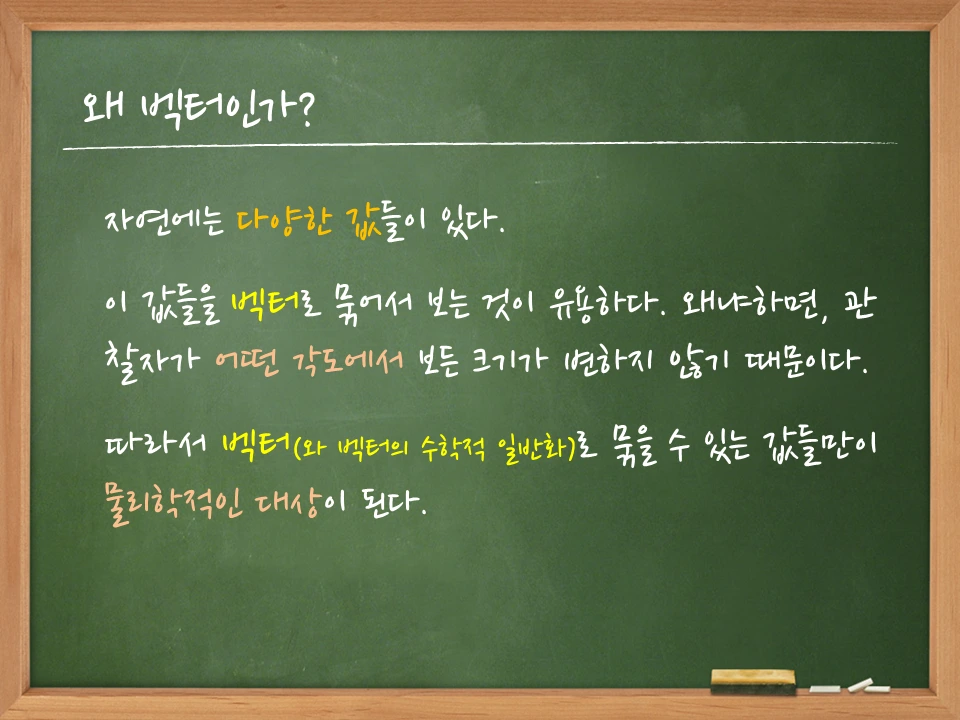 왜 벡터인가?
자연에는 다양한 값들이 있다.
이 값들을 벡터로 묶어서 보는 것이 유용하다. 왜냐하면, 관
찰자가 어떤 각도에서 보든 크기가 변하지 않기 때문이다.
따라서 벡터(와 벡터의 수학적 일반화)로 묶을 수 있는 값들만이
물리학적인 대상이 된다.